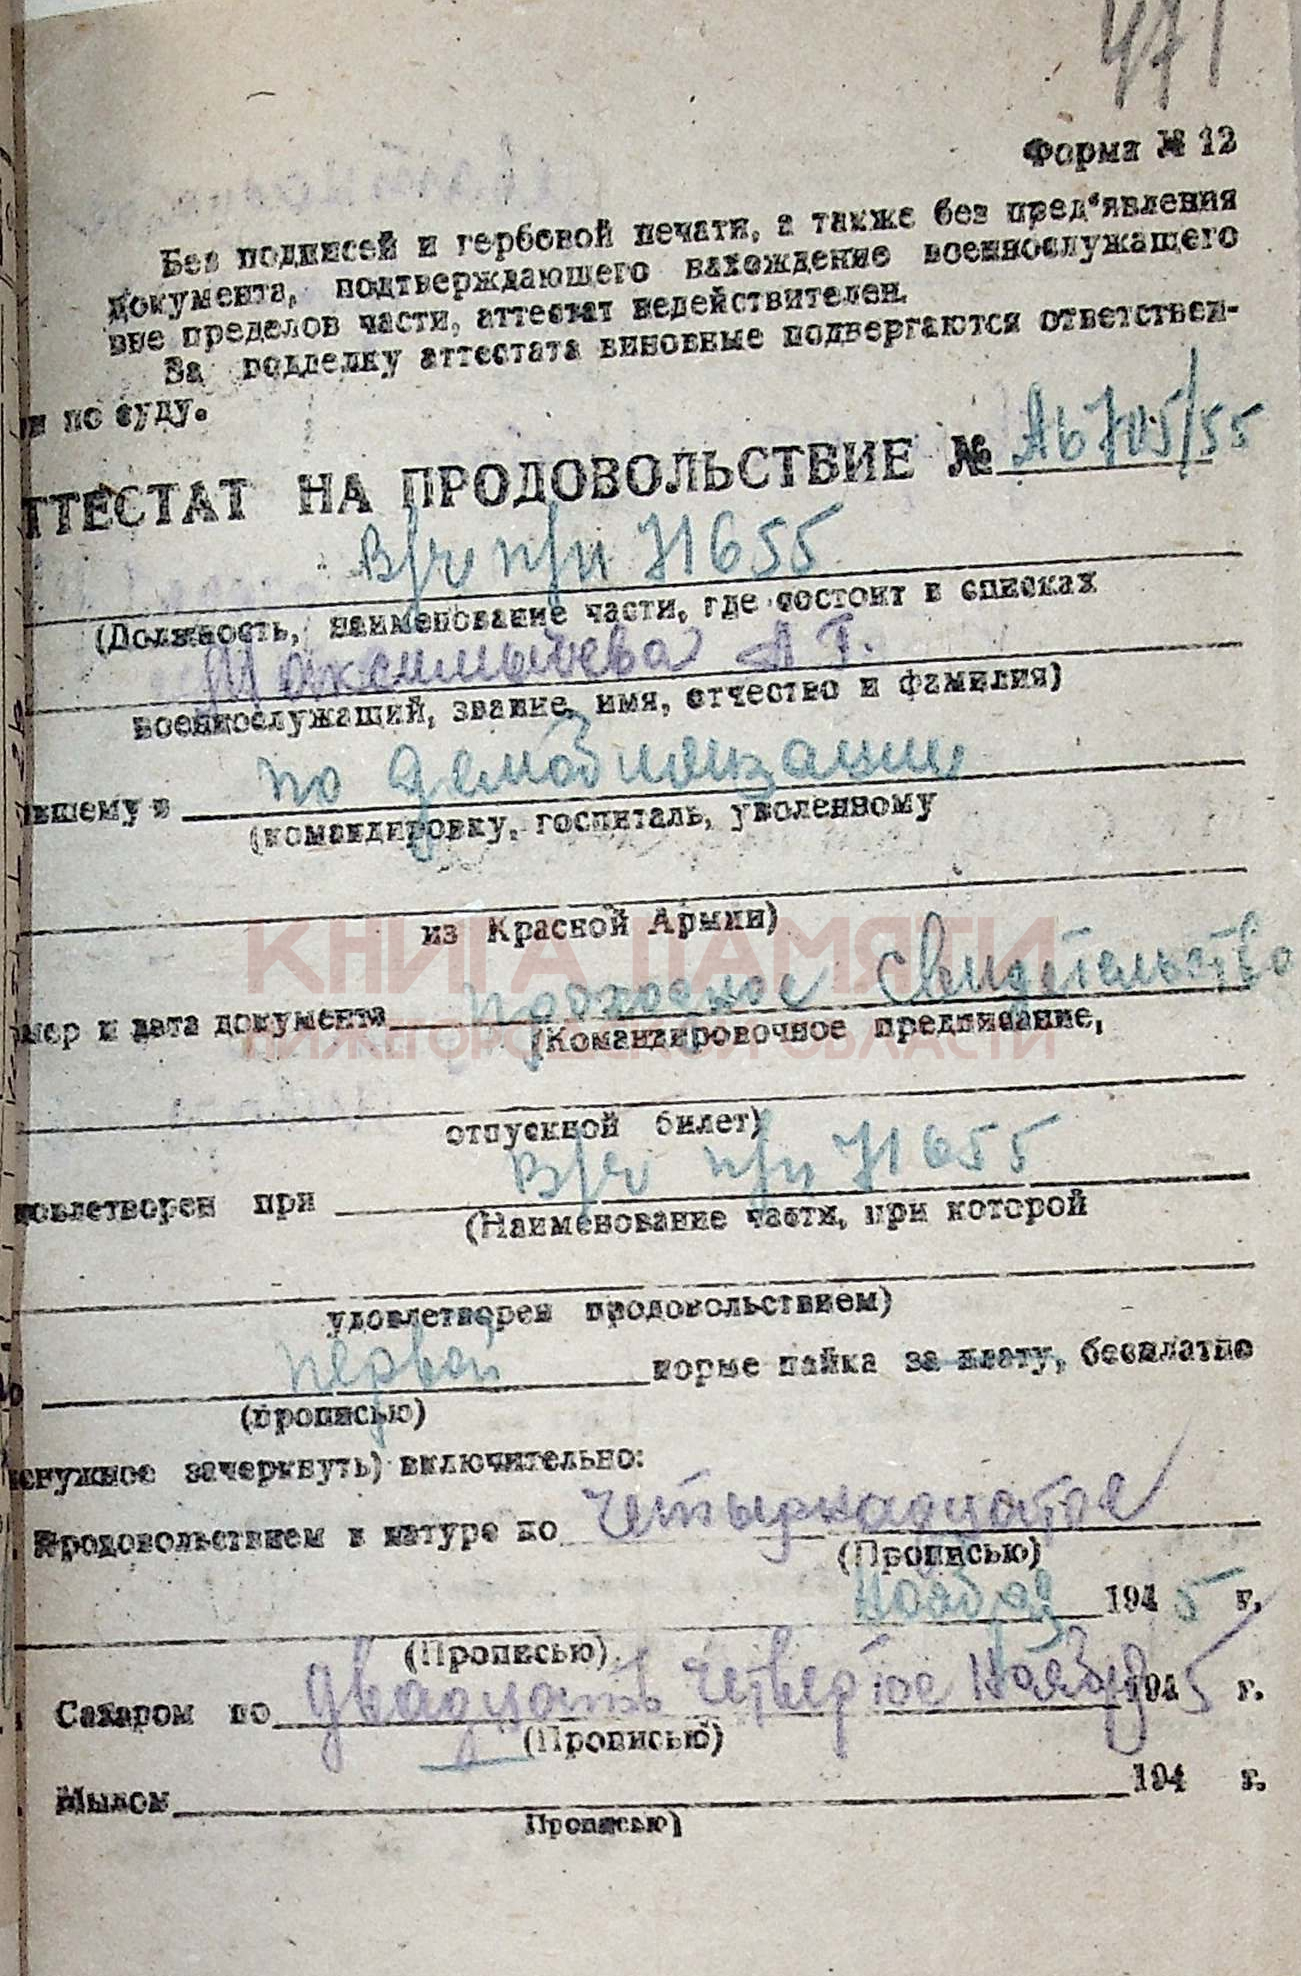 471
Форма № 12
Без подписей и гербовой печати, а также без пред'явления
документа, подтверждающего нахождение военнослужащего
вне пределов части, аттестат недействителен.
За подделку аттестата виновные подвергаются ответствен-
и по суду.
ТТЕСТАТ НА ПРОДОВОЛЬСТВИЕ № АБ 705/55
в/ч п/п 71655
(Должность, наименование части, где состоит в списках
Максимычева А Г.
военнослужащий, звание, имя, отчество и фамилия)
вшему в по демобилизации
(командировку, госпиталь, уволенному
из Красной Армии)
КНИГА ПАМЯТИ
мер и дата документа проходное свидетельство
НИЖЕГОРОДСКОЙ ОБЛАСТИ
(Командировочное предписание,
отпускной билет)
овлетворен при в/ч п/п 71655
(Наименование части, при которой
удовлетворен продовольствием)
по первой норме пайка за плату, бесплатно
(прописью)
енужное зачеркнуть) включительно:
Продовольствием в натуре по четырнадцатое
(Прописью)
Ноября 194 5 г.
(Прописью)
Сахаром по двадцать четвертое Ноября 194 5 г.
(Прописью)
Мылом 194 г.
Прописью)